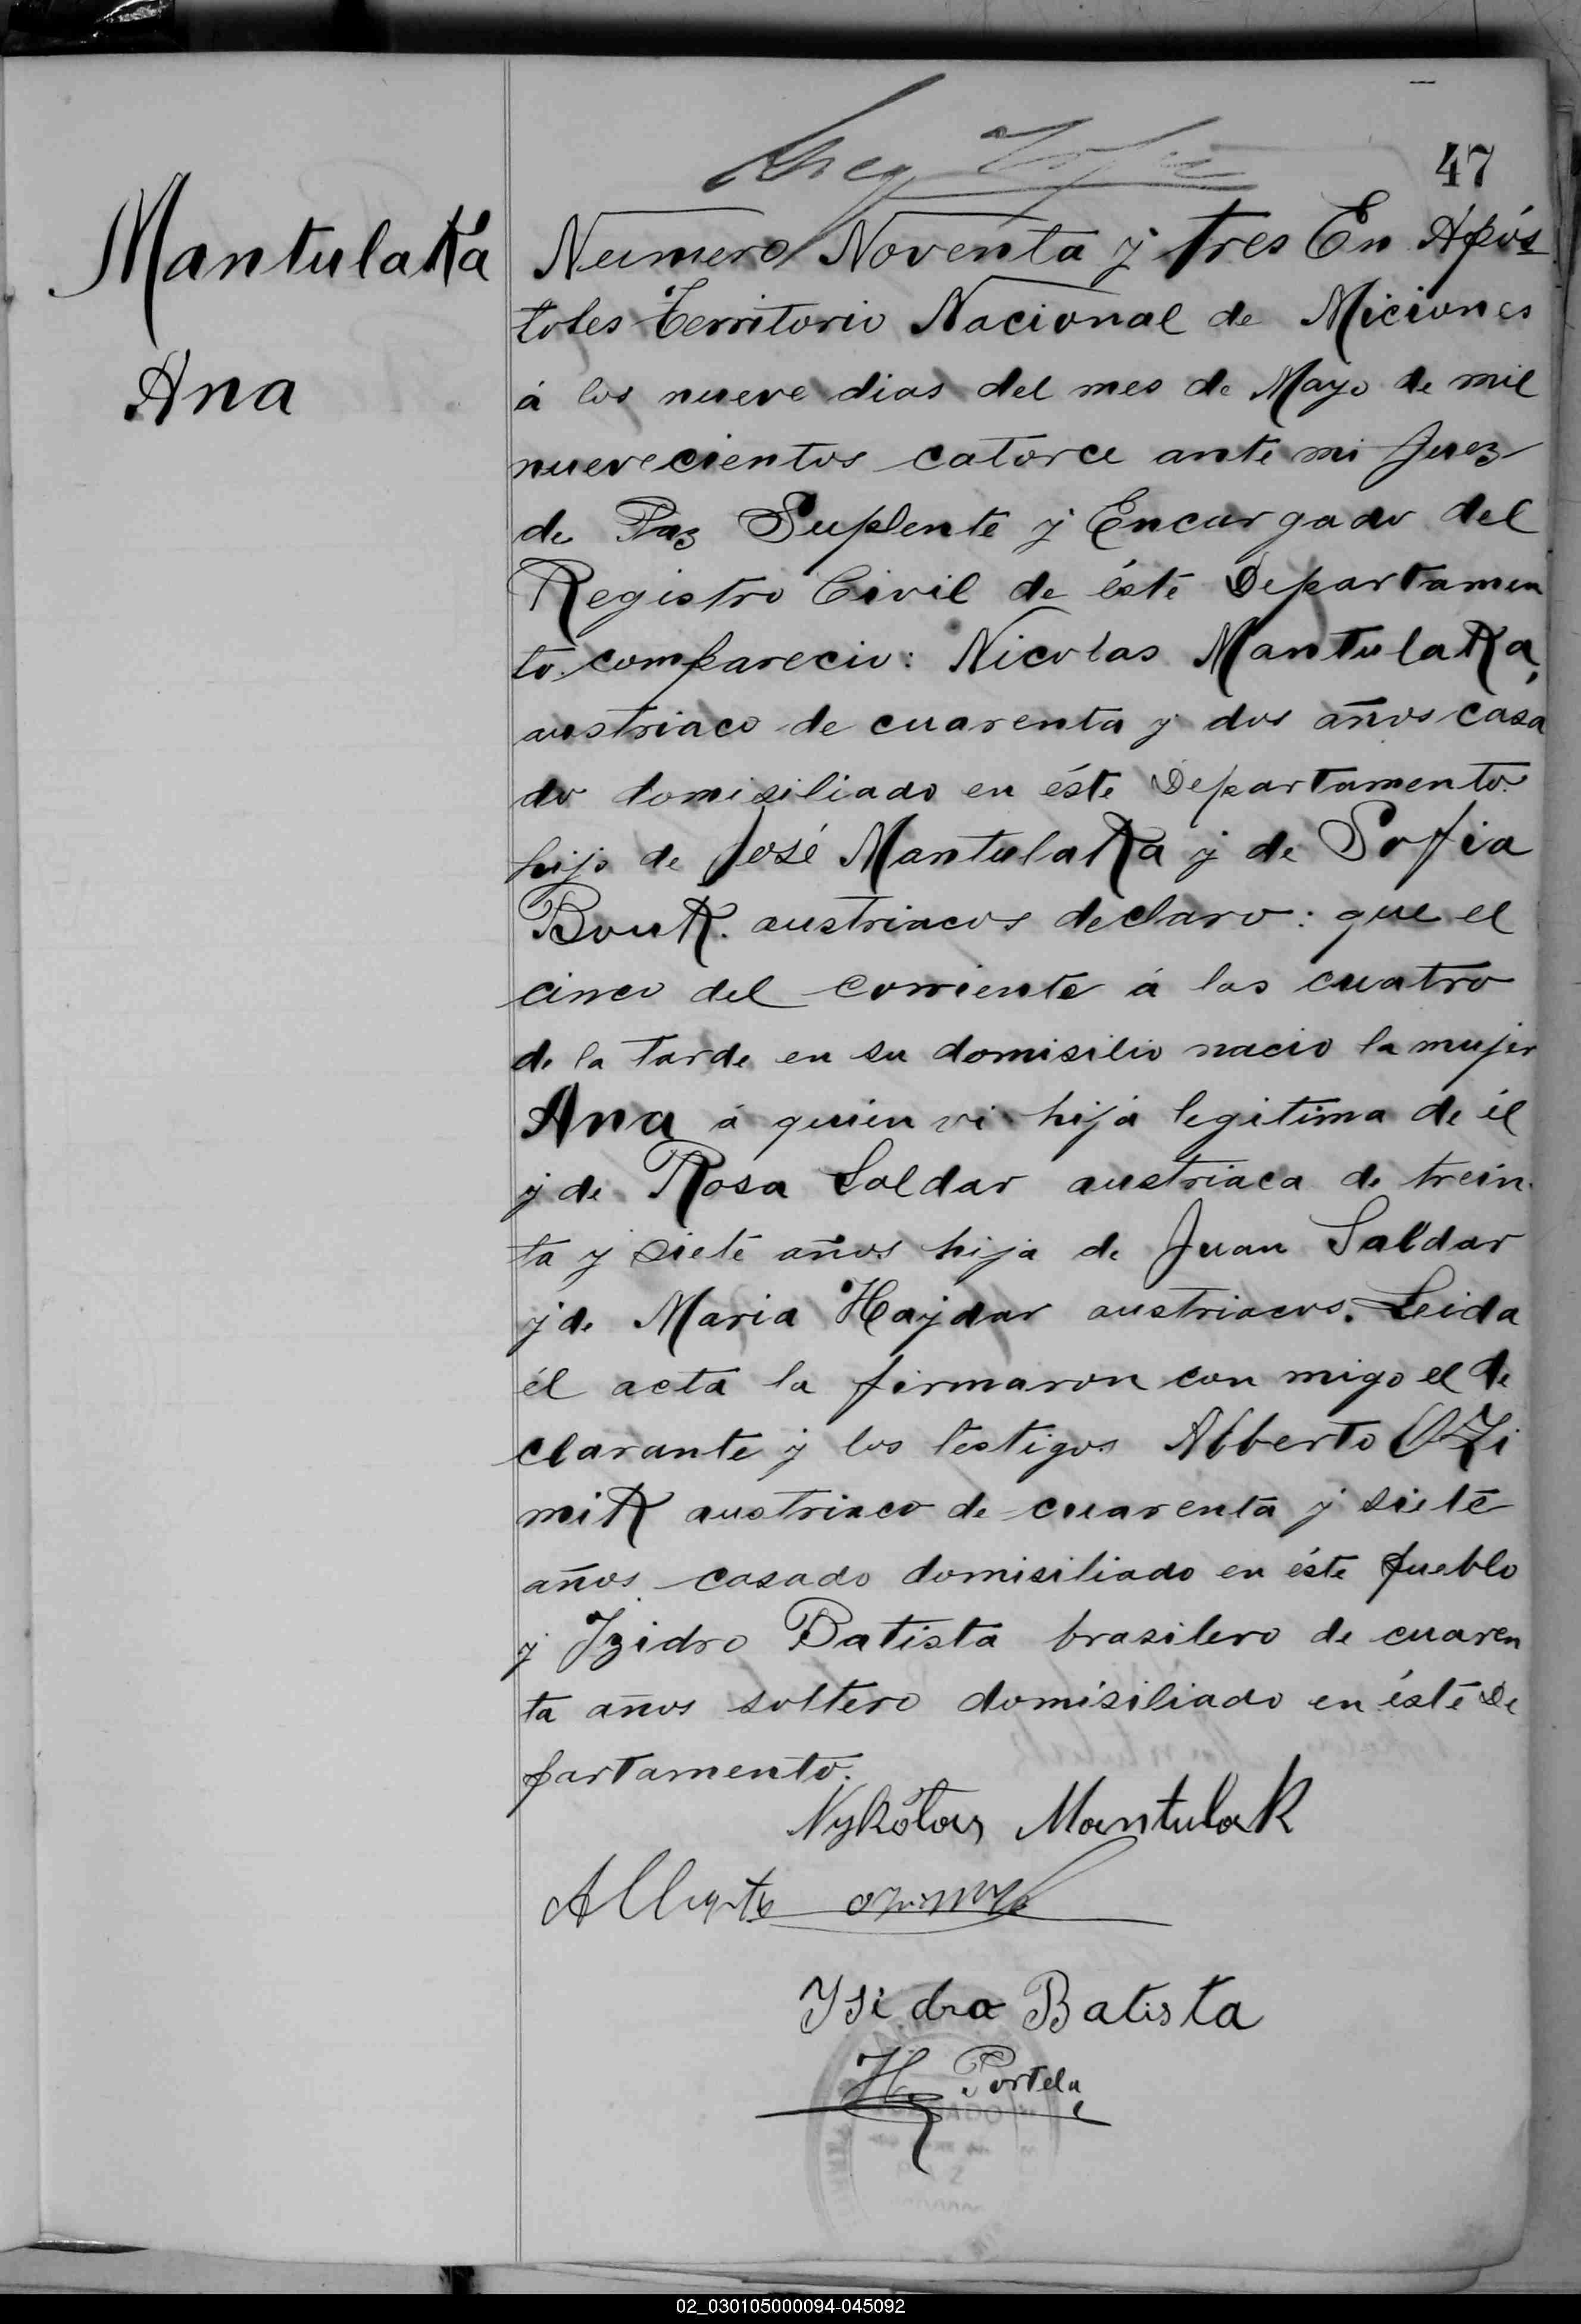 47
MantulaKa
Ana
Numero Noventa y tres En Após
toles Territorio Nacional de Miciones
á los nueve dias del mes de Mayo de mil
nuevecientos catorce ante mi Juez
de Paz Suplente y Encargado del
Registro Civil de éste Departamen
to. comparecio: Nicolas MantulaKa,
austriaco de cuarenta y dos años casa
do domisiliado en éste Departamento.
hijo de José MantulaKa y de Sofia
BouK. austriacos declaro: que el
cinco del corriente á las cuatro
de la tarde en su domisilio nacio la mujer
Ana á quien vi hija legitima de él
y de Rosa Saldar austriaca de trein
ta y siete años hija de Juan Saldar
y de Maria Hajdar austriacos. Leida
él acta la firmaron con migo el de
clarante y los testigos Alberto OZi
miK austriaco de cuarenta y siete
años casado domisiliado en éste pueblo
y Izidro Batista brasilero de cuaren
ta años soltero domisiliado en éste De
partamento.
Nykólas MantulaK
Alberto
Ysidro Batista
H. Portela
02_030105000094-045092